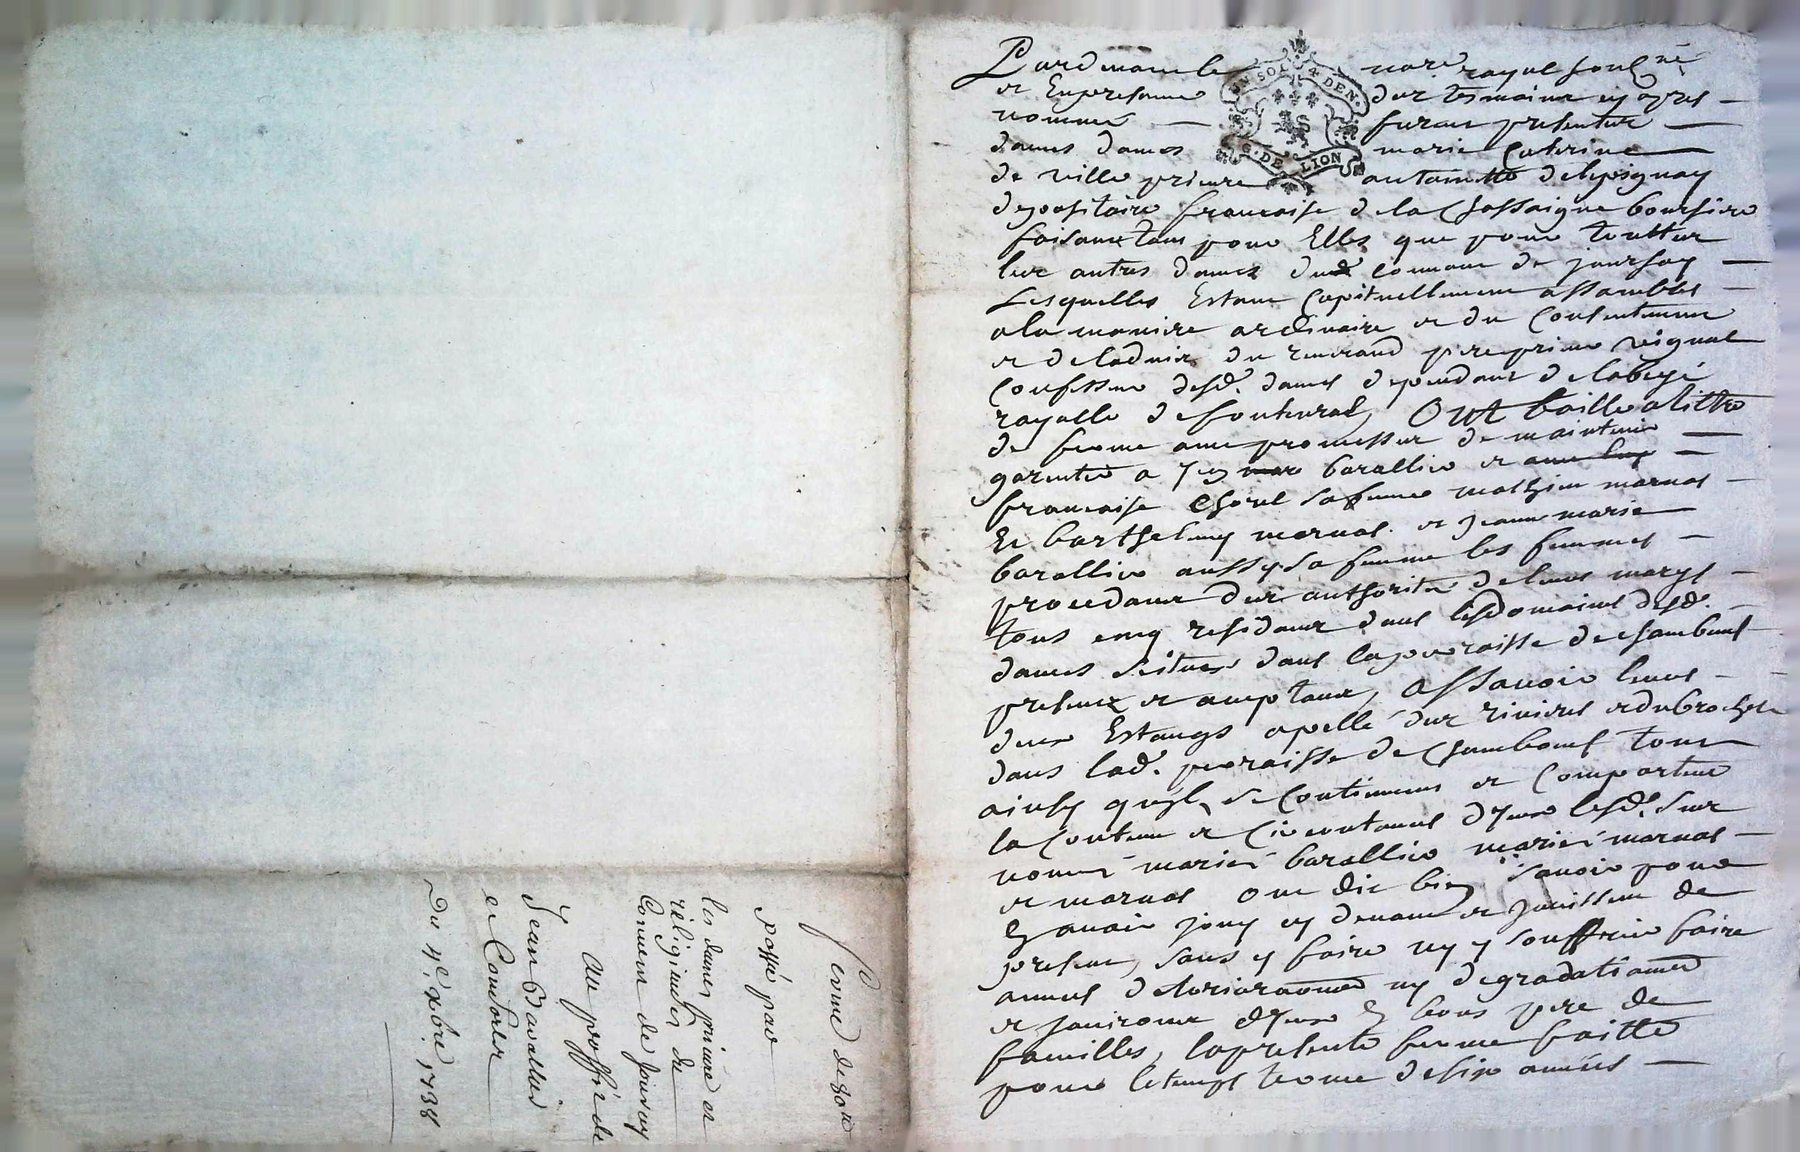 Pardevant le not.re royal soub.né
et En presence des tesmoins cy apres
nommes furent presentes
dames dames marie Caterine
de ville prieure antoinette delespignay
depositaire francoise de la Chassaigne boursiere
faisant tant pour Elles que pour touttes
les autres dames dud. couvant de joursay
Lesquelles Estant Capitullement assambles
a la maniere ordinaire et du Consentement
et de ladvis du reverand pere prieur vignal
Confesseur desd. dames dependant de labeyé
royalle de fontevrad, Ont baillé a tiltre
de ferme avec promesse de maintenir
garentir a Jean barallier et
francoise Chorel sa femme mathieu marnas
Et barthelmy marnas et jeanne marie
barallier aussy sa femme les femmes
procedant de authorité de leurs marys
tous cinq residant dans les domaines desd.
dames scitues dans la parroisse de chambeuf
presents et acceptant, Assavoir leurs
deux Estangs apellé des rivieres et du brochet
dans lad. parroisse de Chambeuf tout
ainsy quils se Contiennent et Comportent
la Contenue et Circontances d'yceux lesd. sus
nommés mariés barallier mariés marnas
et marnas ont dit bien sçavoir pour
En avoir jouy cy devant et jouissent de
present, sans y faire ny y souffrir faire
aucunes deterioraones ny degradationes
et jouiront d'yceux En bons pere de
familles, la presente ferme faitte
pour le temps terme de six annés
Ferme de 80 ll
passé par
les dames prieure et
religieuses du
Couvent de Joursay
au proffit de
Jean Barallier
et Consorts
Du 4e. xbre. 1738
IN. SOL. 4 DEN.
G. DE LION